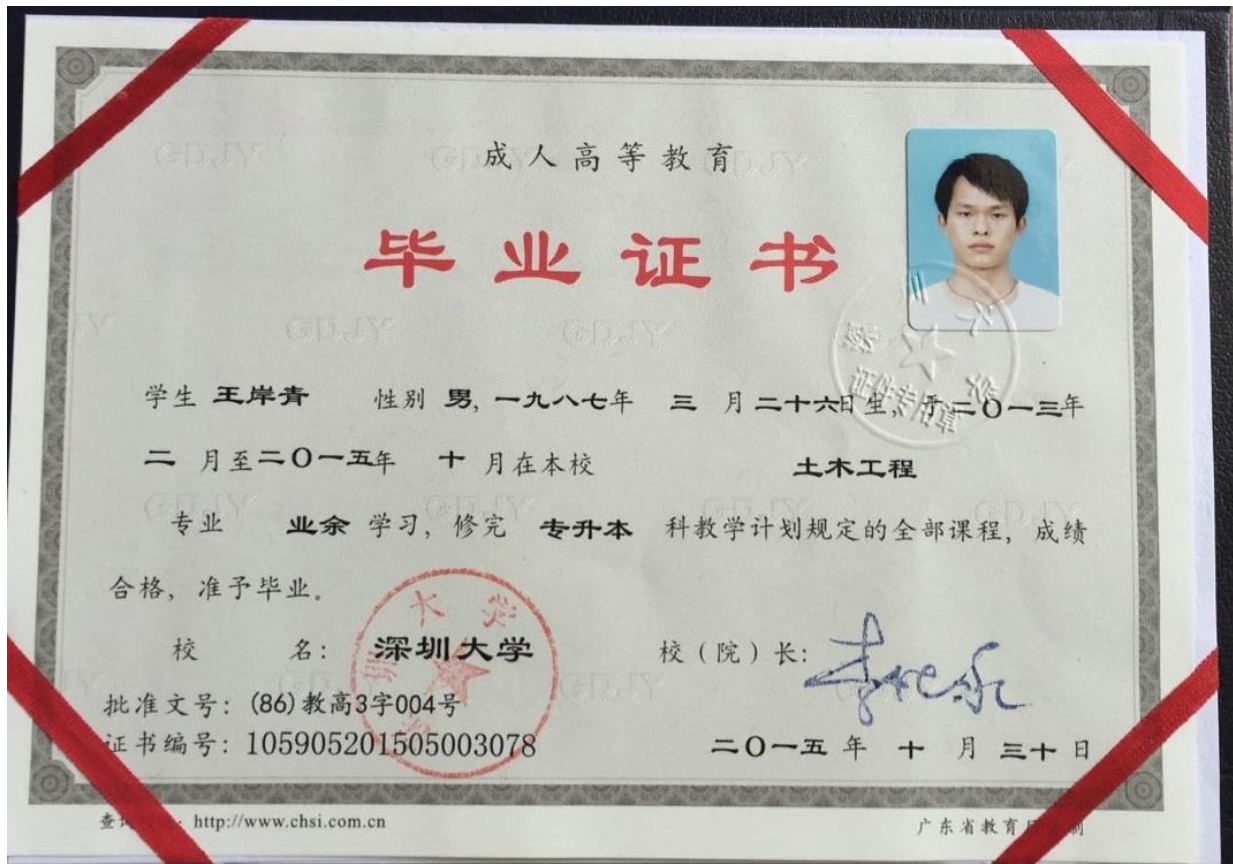 成人高等教育
毕业证书
学生 王岸青 性别 男, 一九八七年 三 月 二十六日生, 于二〇一三年
二 月至二〇一五年 十 月在本校 土木工程
专业 业余 学习, 修完 专升本 科教学计划规定的全部课程, 成绩
合格, 准予毕业。
校 名: 深圳大学 校(院)长:
批准文号: (86)教高3字004号
证书编号: 105905201505003078 二〇一五 年 十 月 三十 日
http://www.chsi.com.cn 广东省教育
深圳大学
证件专用章
GDJY